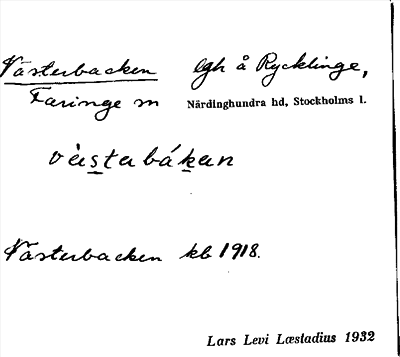 Västerbacken lgh å Rycklinge,
Faringe sn Närdinghundra hd, Stockholms l.
västabákan
Västerbacken kb 1918.
Lars Levi Læstadius 1932